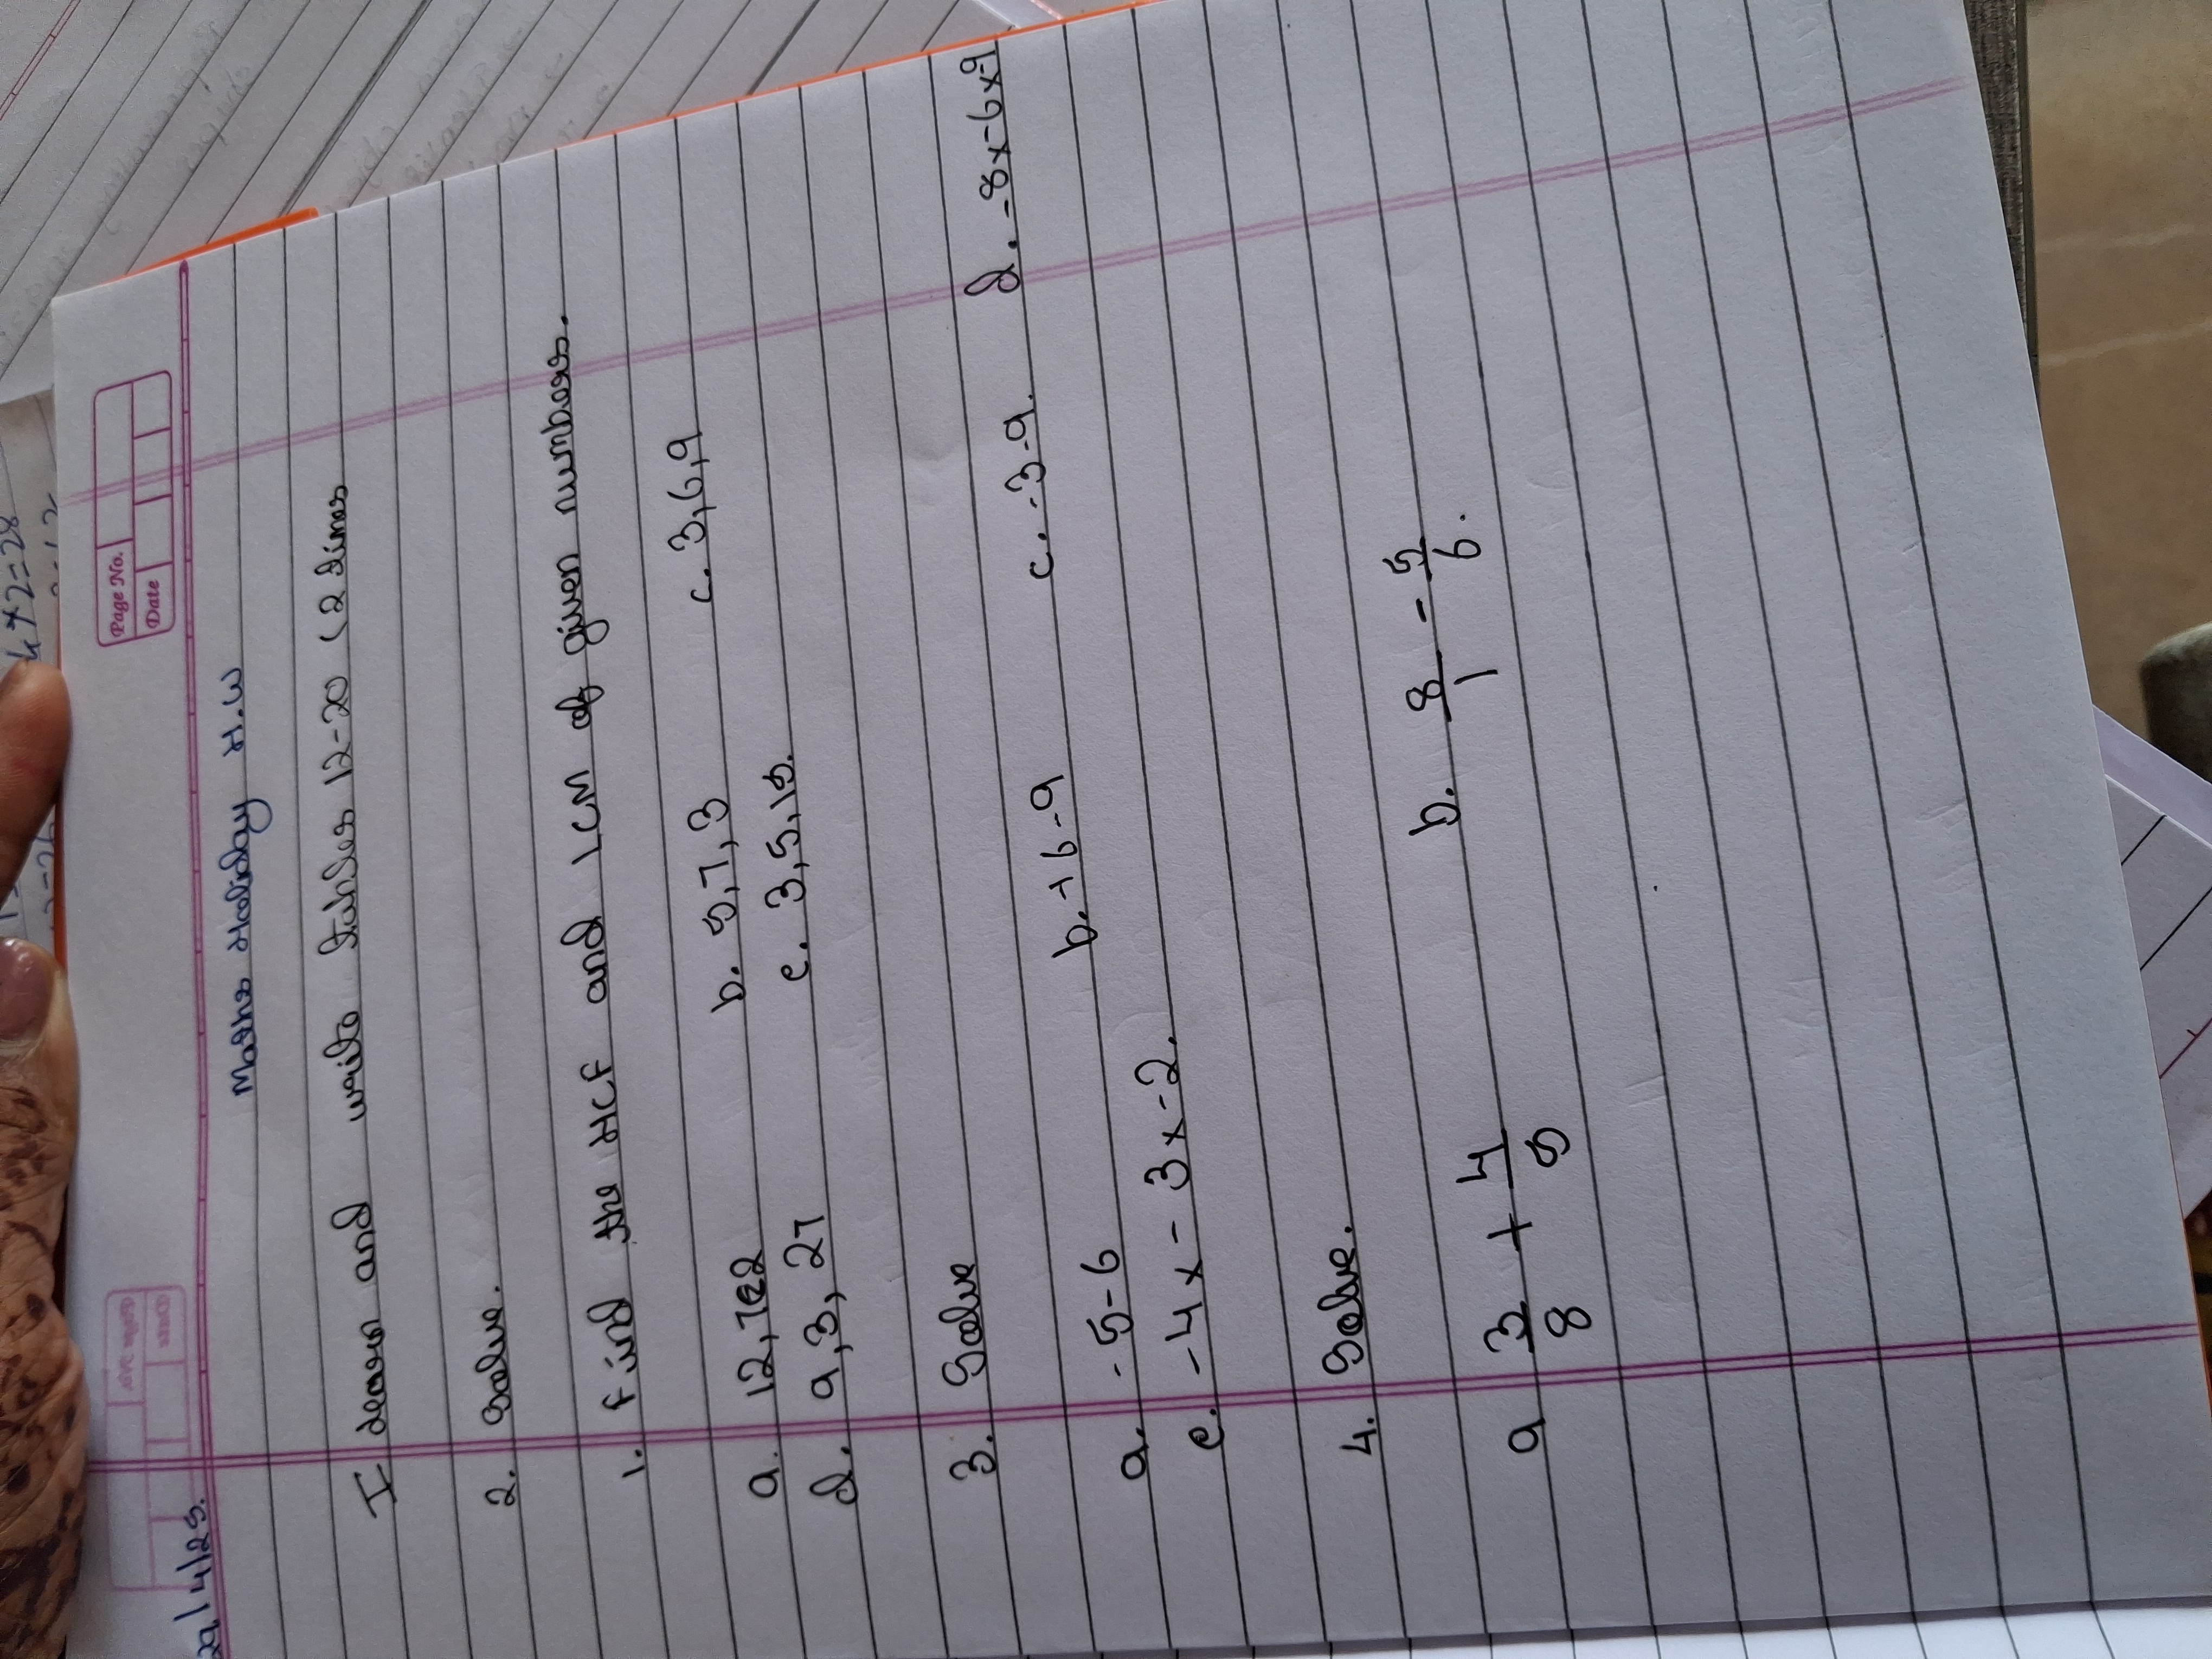 Page No.
Date
29/4/25.
Maths Holiday H.W
I learn and write tables 12-20 (2 times
2. Solve.
1. Find the HCF and LCM of given numbers.
a. 12, b. 5,7,3 c. 3,6,9
d. 9,3,27 e. 3,5,15.
3. Solve
a. -5-6 b. +6-9 c. -3-9. d. -8x-6x-9
e. -4x-3x-2.
4. Solve.
a 3/8 + 4/5 b. 8/1 - 5/6.
4*2=28